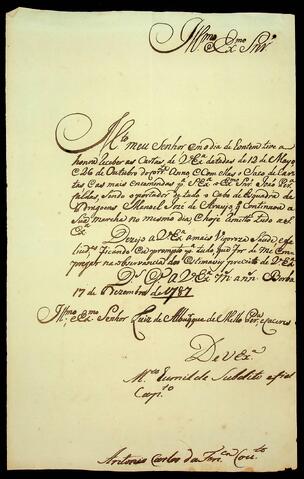 Illmo. e Exmo. Snr.
Mto. meu Senhor. em o dia de hontem tive a
honra receber as Cartas de V. Exa. datadas de 12 de Mayo
e 26 de Outubro do Anno, e Com ellas o Saco de Cartas
e as mais encomendas pa. S. Exa. o Exmo. Snr. João Per.
Caldas, Sendo o portador de tudo o Cabo de Esquadra de
Dragoens Manoel Joze de Araujo, e Continuará a
Sua marcha no mesmo dia, e hoje
Exa.
Dezejo a V. Exa. a mais Vigoroza Saude, e fe-
licides. ficando Eu prompto pa. tudo que for de me em-
pregar na observancia dos Estimaveis preceitos de V. Exa.
Ds. Ge. a V. Exa. ms. ans. Borba
17 de Dezembro de 1787
Illmo. e Exmo. Senhor Luiz de Albuqque. de Mello Pera. e Caceres
De V. Exa.
Mto. humilde Subdito e fiel
Capto.
Antonio Carlos da Fonca. Couto